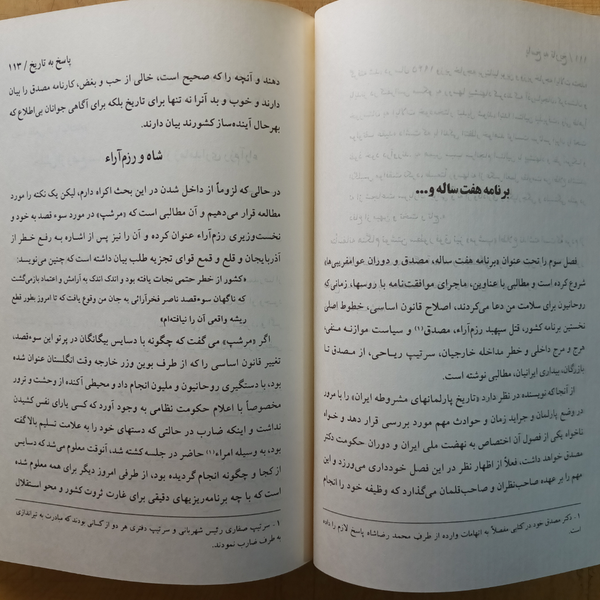 برنامه هفت ساله و...
فصل سوم را تحت عنوان «برنامه هفت ساله، مصدق و دوران عوامفریبی‌ها»
شروع کرده است و مطالبی با عناوین، ماجرای موافقت‌نامه با روسها، زمانی که
روحانیون برای سلامت من دعا می‌کردند، اصلاح قانون اساسی، خطوط اصلی
نخستین برنامه کشور، قتل سپهبد رزم‌آراء، مصدق(۱) و سیاست موازنه منفی،
هرج و مرج داخلی و خطر مداخله خارجیان، سرتیپ ریاحی، از مصدق تا
بازرگان، بیداری ایرانیان، مطالبی نوشته است.
از آنجا که نویسنده در نظر دارد «تاریخ پارلمانهای مشروطه ایران» را با مرور
در وضع پارلمان و جراید زمان و حوادث مهم مورد بررسی قرار دهد و خواه
ناخواه یکی از فصول آن اختصاص به نهضت ملی ایران و دوران حکومت دکتر
مصدق خواهد داشت، فعلاً از اظهار نظر در این فصل خودداری می‌ورزد و این
مهم را بر عهده صاحب‌نظران و صاحب‌قلمان می‌گذارد که وظیفه خود را انجام
۱ـ دکتر مصدق خود در کتابی مفصلاً به اتهامات وارده از طرف محمد رضاشاه پاسخ لازم را داده
است.
پاسخ به تاریخ / ۱۱۳
دهند و آنچه را که صحیح است، خالی از حب و بغض، کارنامه مصدق را بیان
دارند و خوب و بد آنرا نه تنها برای تاریخ بلکه برای آگاهی جوانان بی‌اطلاع که
بهرحال آینده‌ساز کشورند بیان دارند.
شاه و رزم‌آراء
در حالی که لزوماً از داخل شدن در این بحث اکراه دارم، لیکن یک نکته را مورد
مطالعه قرار می‌دهیم و آن مطالبی است که «مرشپ» در مورد سوءقصد به خود و
نخست‌وزیری رزم‌آراء عنوان کرده و آن را نیز پس از اشاره به رفع خطر از
آذربایجان و قلع و قمع قوای تجزیه طلب بیان داشته است که چنین می‌نویسد:
«کشور از خطر حتمی نجات یافته بود و اندک اندک به آرامش و اعتماد بازمی‌گشت
که ناگهان سوءقصد ناصر فخرآرائی به جان من وقوع یافت که تا امروز بطور قطع
ریشه واقعی آن را نیافته‌ام»
اگر «مرشپ» می گفت که چگونه با دسایس بیگانگان در پرتو این سوءقصد،
تغییر قانون اساسی را که از طرف بوین وزر خارجه وقت انگلستان عنوان شده
بود، با دستگیری روحانیون و ملیون انجام داد و محیطی آکنده از وحشت و ترور
مخصوصاً با اعلام حکومت نظامی به وجود آورد که کسی یارای نفس کشیدن
نداشت و اینکه ضارب در حالتی که دستهای خود را به علامت تسلیم بالا گفته
بود، به وسیله امراء (۱) حاضر در جلسه کشته شد، آنوقت معلوم می‌شد که دسایس
از کجا و چگونه انجام گردیده بود، از طرفی امروز دیگر برای همه معلوم شده
است که با چه برنامه‌ریزیهای دقیقی برای غارت ثروت کشور و محو استقلال
۱ ـ سرتیپ صفاری رئیس شهربانی و سرتیپ دفتری هر دو از کسانی بودند که مبادرت به تیراندازی
به طرف ضارب نمودند.